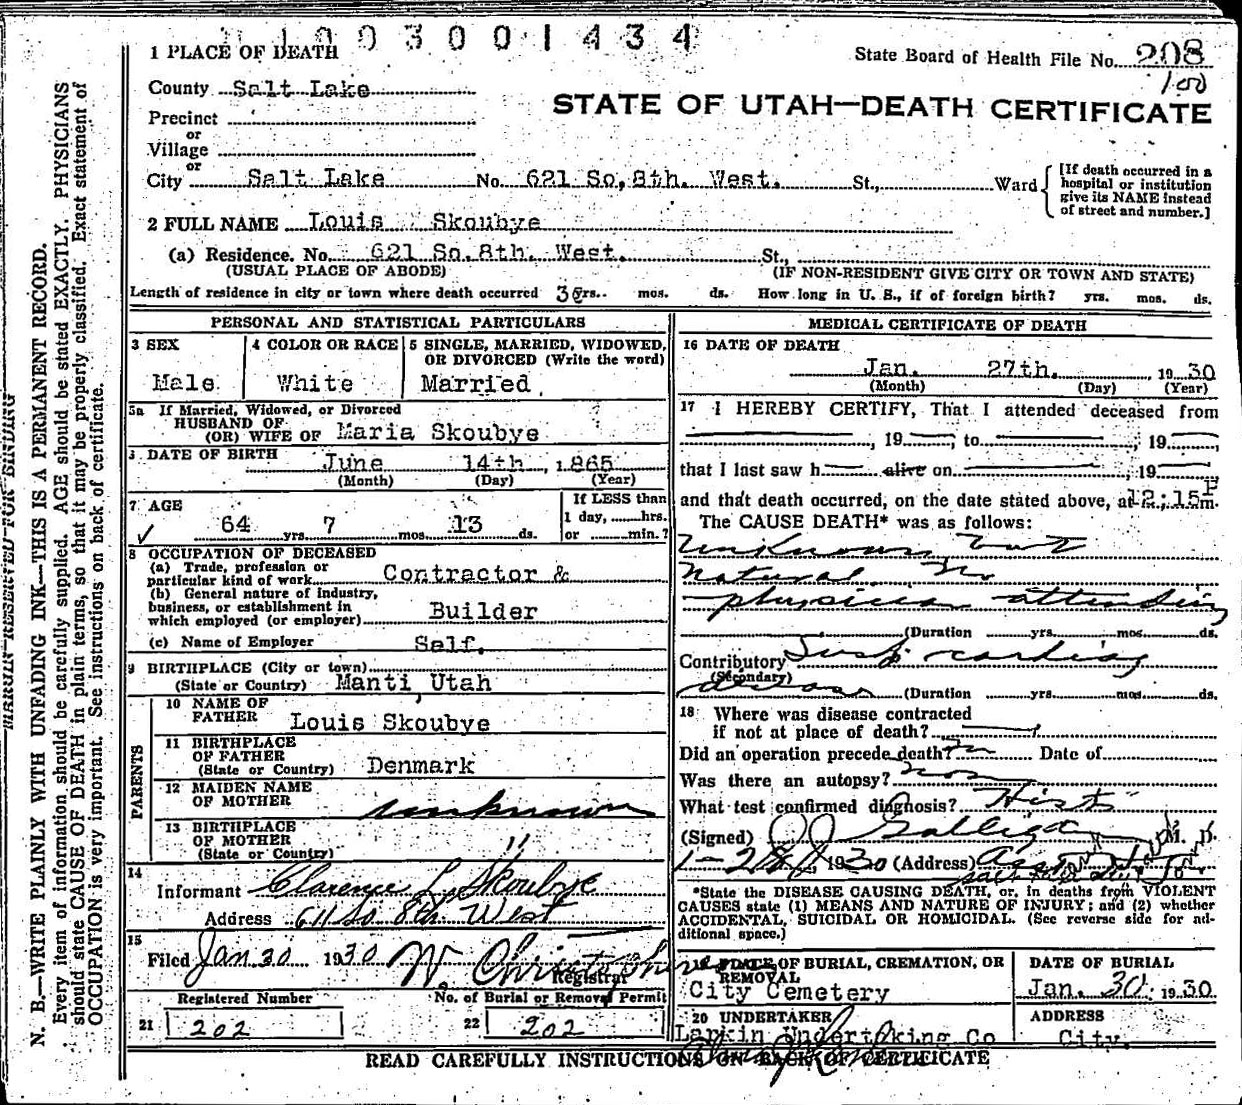 1003001434
1 PLACE OF DEATH
State Board of Health File No. 208
100
County Salt Lake
STATE OF UTAH—DEATH CERTIFICATE
Precinct
or
Village
or
City Salt Lake No. 621 So, 8th. West. St., Ward
[If death occurred in a
hospital or institution
give its NAME instead
of street and number.]
2 FULL NAME Louis Skoubye
(a) Residence. No. 621 So. 8th. West. St.,
(USUAL PLACE OF ABODE) (IF NON-RESIDENT GIVE CITY OR TOWN AND STATE)
Length of residence in city or town where death occurred yrs. mos. ds. How long in U. S., if of foreign birth? yrs. mos. ds.
PERSONAL AND STATISTICAL PARTICULARS
3 SEX
Male
4 COLOR OR RACE
White
5 SINGLE, MARRIED, WIDOWED,
OR DIVORCED (Write the word)
Married
5a If Married, Widowed, or Divorced
HUSBAND OF
(OR) WIFE OF Maria Skoubye
DATE OF BIRTH
June 14th, 1865
(Month) (Day) (Year)
7 AGE
64 yrs. 7 mos. 13 ds.
If LESS than
1 day, hrs.
or min.?
8 OCCUPATION OF DECEASED
(a) Trade, profession or
particular kind of work Contractor &
(b) General nature of industry,
business, or establishment in
which employed (or employer) Builder
(c) Name of Employer Self.
9 BIRTHPLACE (City or town)
(State or Country) Manti, Utah
PARENTS
10 NAME OF
FATHER Louis Skoubye
11 BIRTHPLACE
OF FATHER
(State or Country) Denmark
12 MAIDEN NAME
OF MOTHER unknown
13 BIRTHPLACE
OF MOTHER
(State or Country) "
14
Informant Clarence L. Skoubye
Address 611 So 8th West
15
Filed Jan 30 1930 W. Christopherson
Registrar
Registered Number
21 202
No. of Burial or Removal Permit
22 202
MEDICAL CERTIFICATE OF DEATH
16 DATE OF DEATH
Jan. 27th. 1930
(Month) (Day) (Year)
17 I HEREBY CERTIFY, That I attended deceased from
, 19 to , 19
that I last saw h alive on , 19
and that death occurred, on the date stated above, at 12:15 P m.
The CAUSE DEATH* was as follows:
Unknown but
Natural. No
physician attending
(Duration yrs. mos. ds.
Contributory Susp cardiac
(Secondary)
disease (Duration yrs. mos. ds.
18 Where was disease contracted
if not at place of death?
Did an operation precede death? no Date of
Was there an autopsy? non
What test confirmed diagnosis? Hist
(Signed) Galligan M. D.
1-28 1930 (Address)
*State the DISEASE CAUSING DEATH, or, in deaths from VIOLENT
CAUSES state (1) MEANS AND NATURE OF INJURY; and (2) whether
ACCIDENTAL, SUICIDAL OR HOMICIDAL. (See reverse side for ad-
ditional space.)
19 PLACE OF BURIAL, CREMATION, OR
REMOVAL
City Cemetery
DATE OF BURIAL
Jan. 30, 1930
20 UNDERTAKER
Larkin Undertaking Co
ADDRESS
City.
READ CAREFULLY INSTRUCTIONS ON BACK OF CERTIFICATE
MARGIN RESERVED FOR BINDING
N. B.—WRITE PLAINLY WITH UNFADING INK—THIS IS A PERMANENT RECORD.
Every item of information should be carefully supplied. AGE should be stated EXACTLY. PHYSICIANS
should state CAUSE OF DEATH in plain terms, so that it may be properly classified. Exact statement of
OCCUPATION is very important. See instructions on back of certificate.